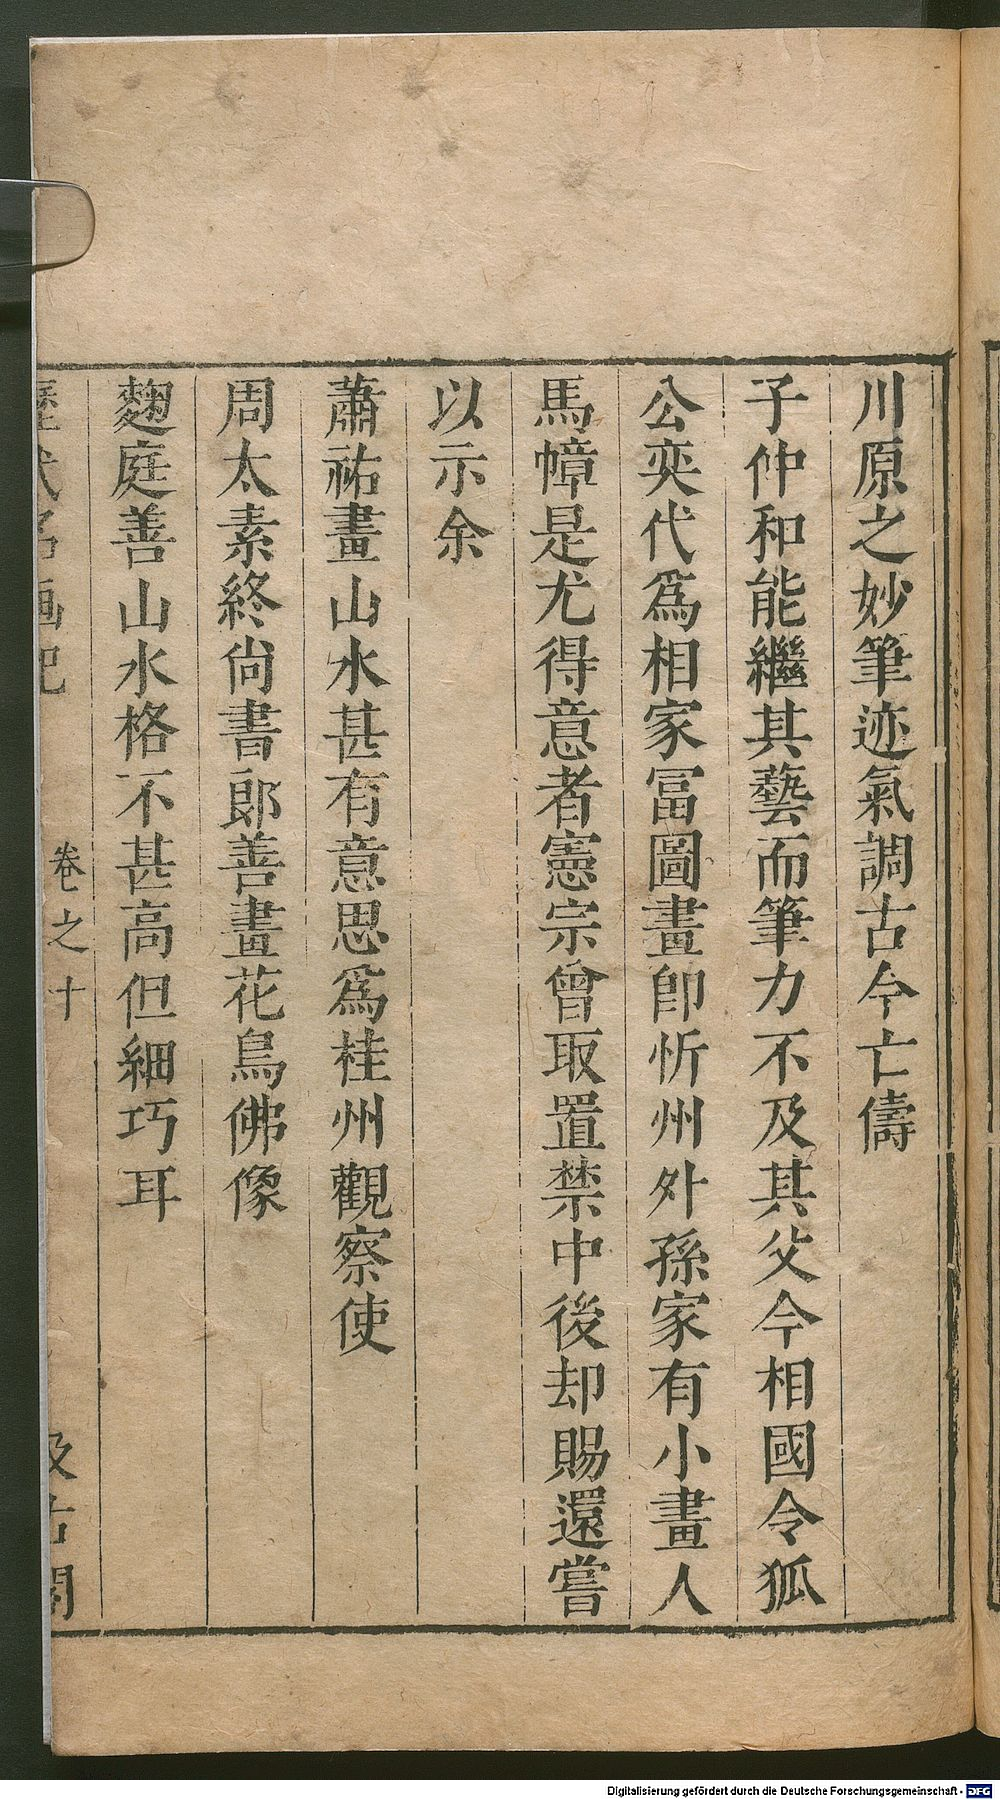 川原之妙筆迹氣調古今亡儔
子仲和能繼其藝而筆力不及其父今相國令狐
公奕代爲相家冨圖畫卽忻州外孫家有小畫人
馬幛是尤得意者憲宗曾取置禁中後却賜還嘗
以示余
蕭祐畫山水甚有意思爲桂州觀察使
周太素終尙書郎善畫花鳥佛像
麴庭善山水格不甚高但細巧耳
歷代名画記 卷之十 汲古閣
Digitalisierung gefördert durch die Deutsche Forschungsgemeinschaft - DFG